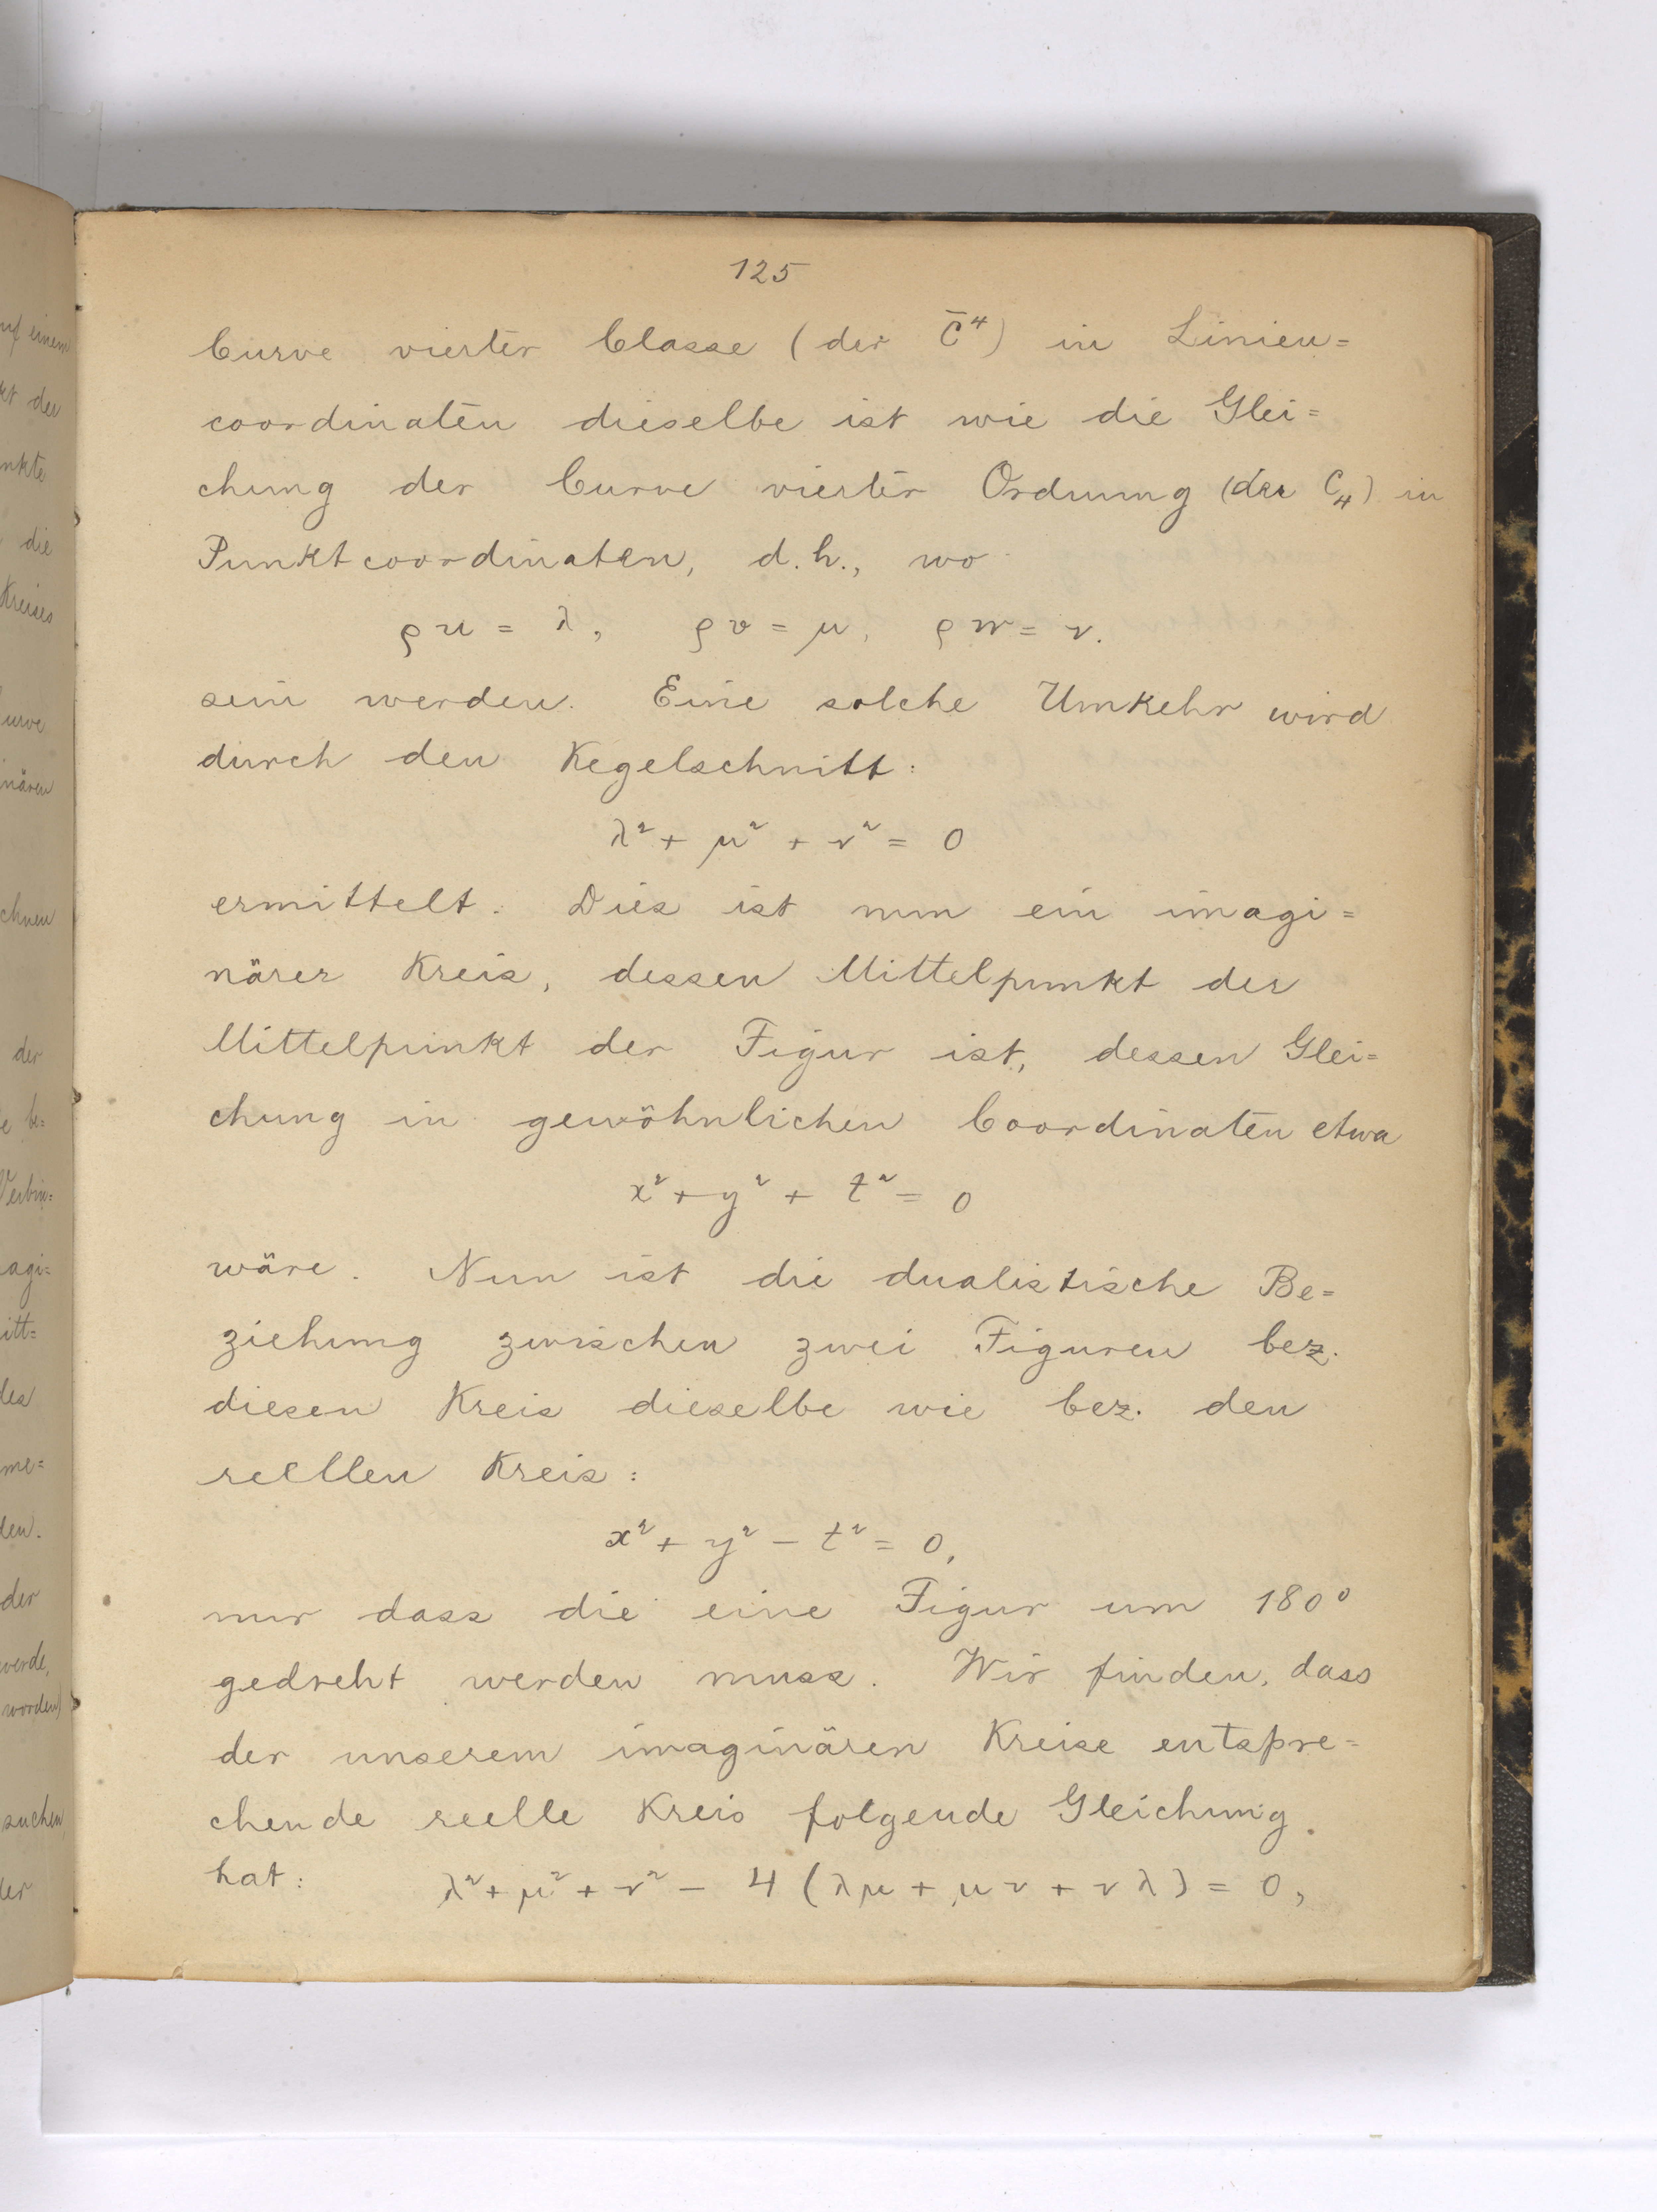 125
Curve vierter Classe (der C̄⁴) in Linien=
coordinaten dieselbe ist wie die Glei=
chung der Curve vierter Ordnung (der C₄) in
Punktcoordinaten, d.h., wo
ρu = λ, ρv = μ, ρw = ν.
sein werden. Eine solche Umkehr wird
durch den Kegelschnitt:
λ² + μ² + ν² = 0
ermittelt. Dies ist nun ein imagi=
närer Kreis, dessen Mittelpunkt der
Mittelpunkt der Figur ist, dessen Glei=
chung in gewöhnlichen Coordinaten etwa
x² + y² + t² = 0
wäre. Nun ist die dualistische Be=
ziehung zwischen zwei Figuren bez.
diesen Kreis dieselbe wie bez. den
reellen Kreis:
x² + y² − t² = 0,
nur dass die eine Figur um 180°
gedreht werden muss. Wir finden, dass
der unserem imaginären Kreise entspre=
chende reelle Kreis folgende Gleichung
hat: λ² + μ² + ν² − 4 (λμ + μν + νλ) = 0,